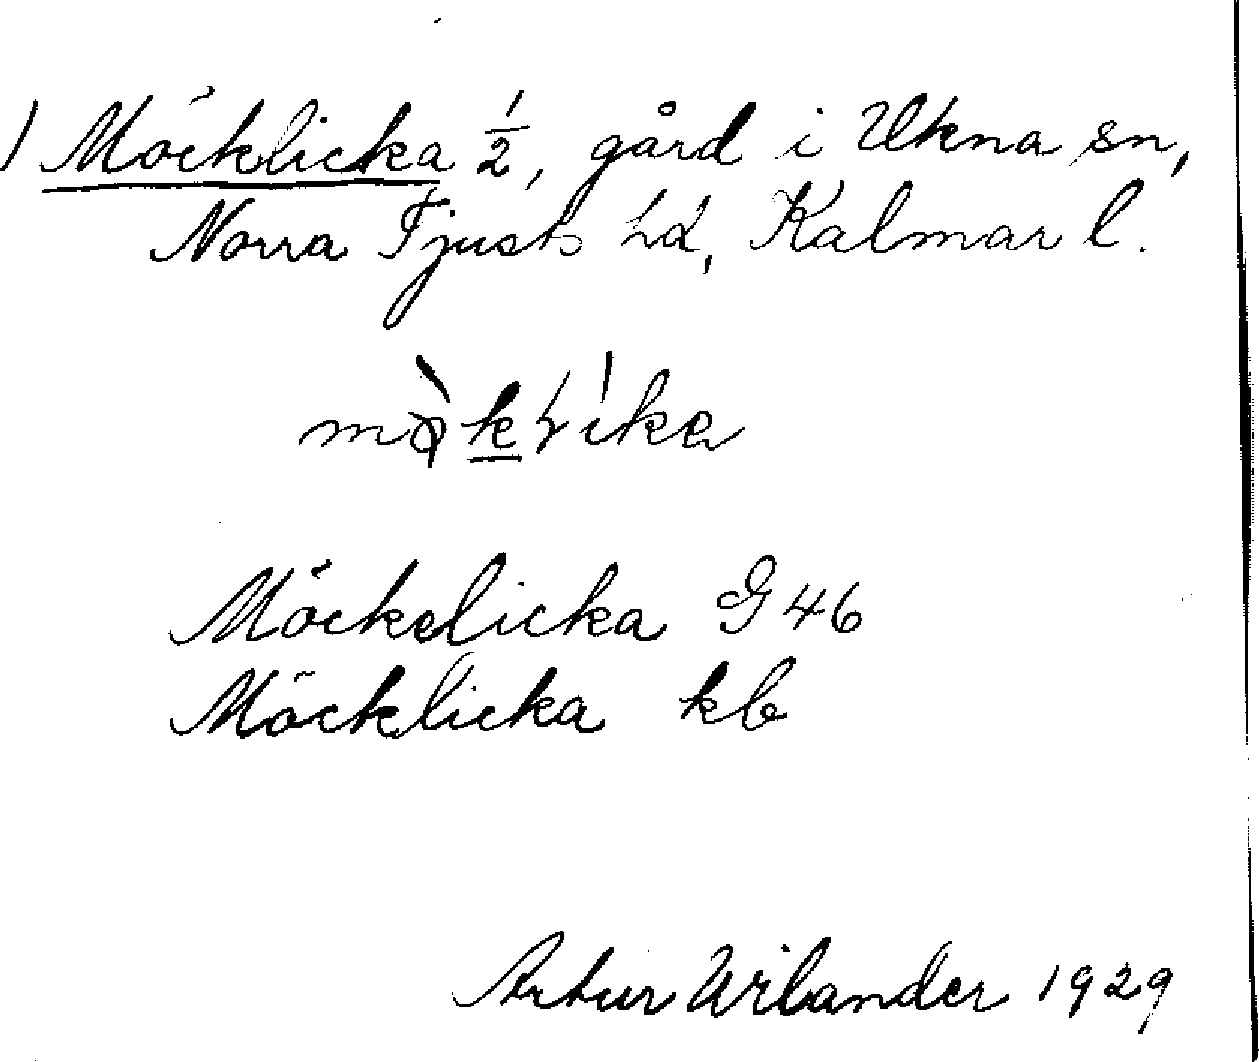 1) Möcklicka ½, gård i Ukna sn,
Norra Tjusts hd, Kalmar l.
Möckelicka G 46
Möcklicka kb
Artur Wilander 1929